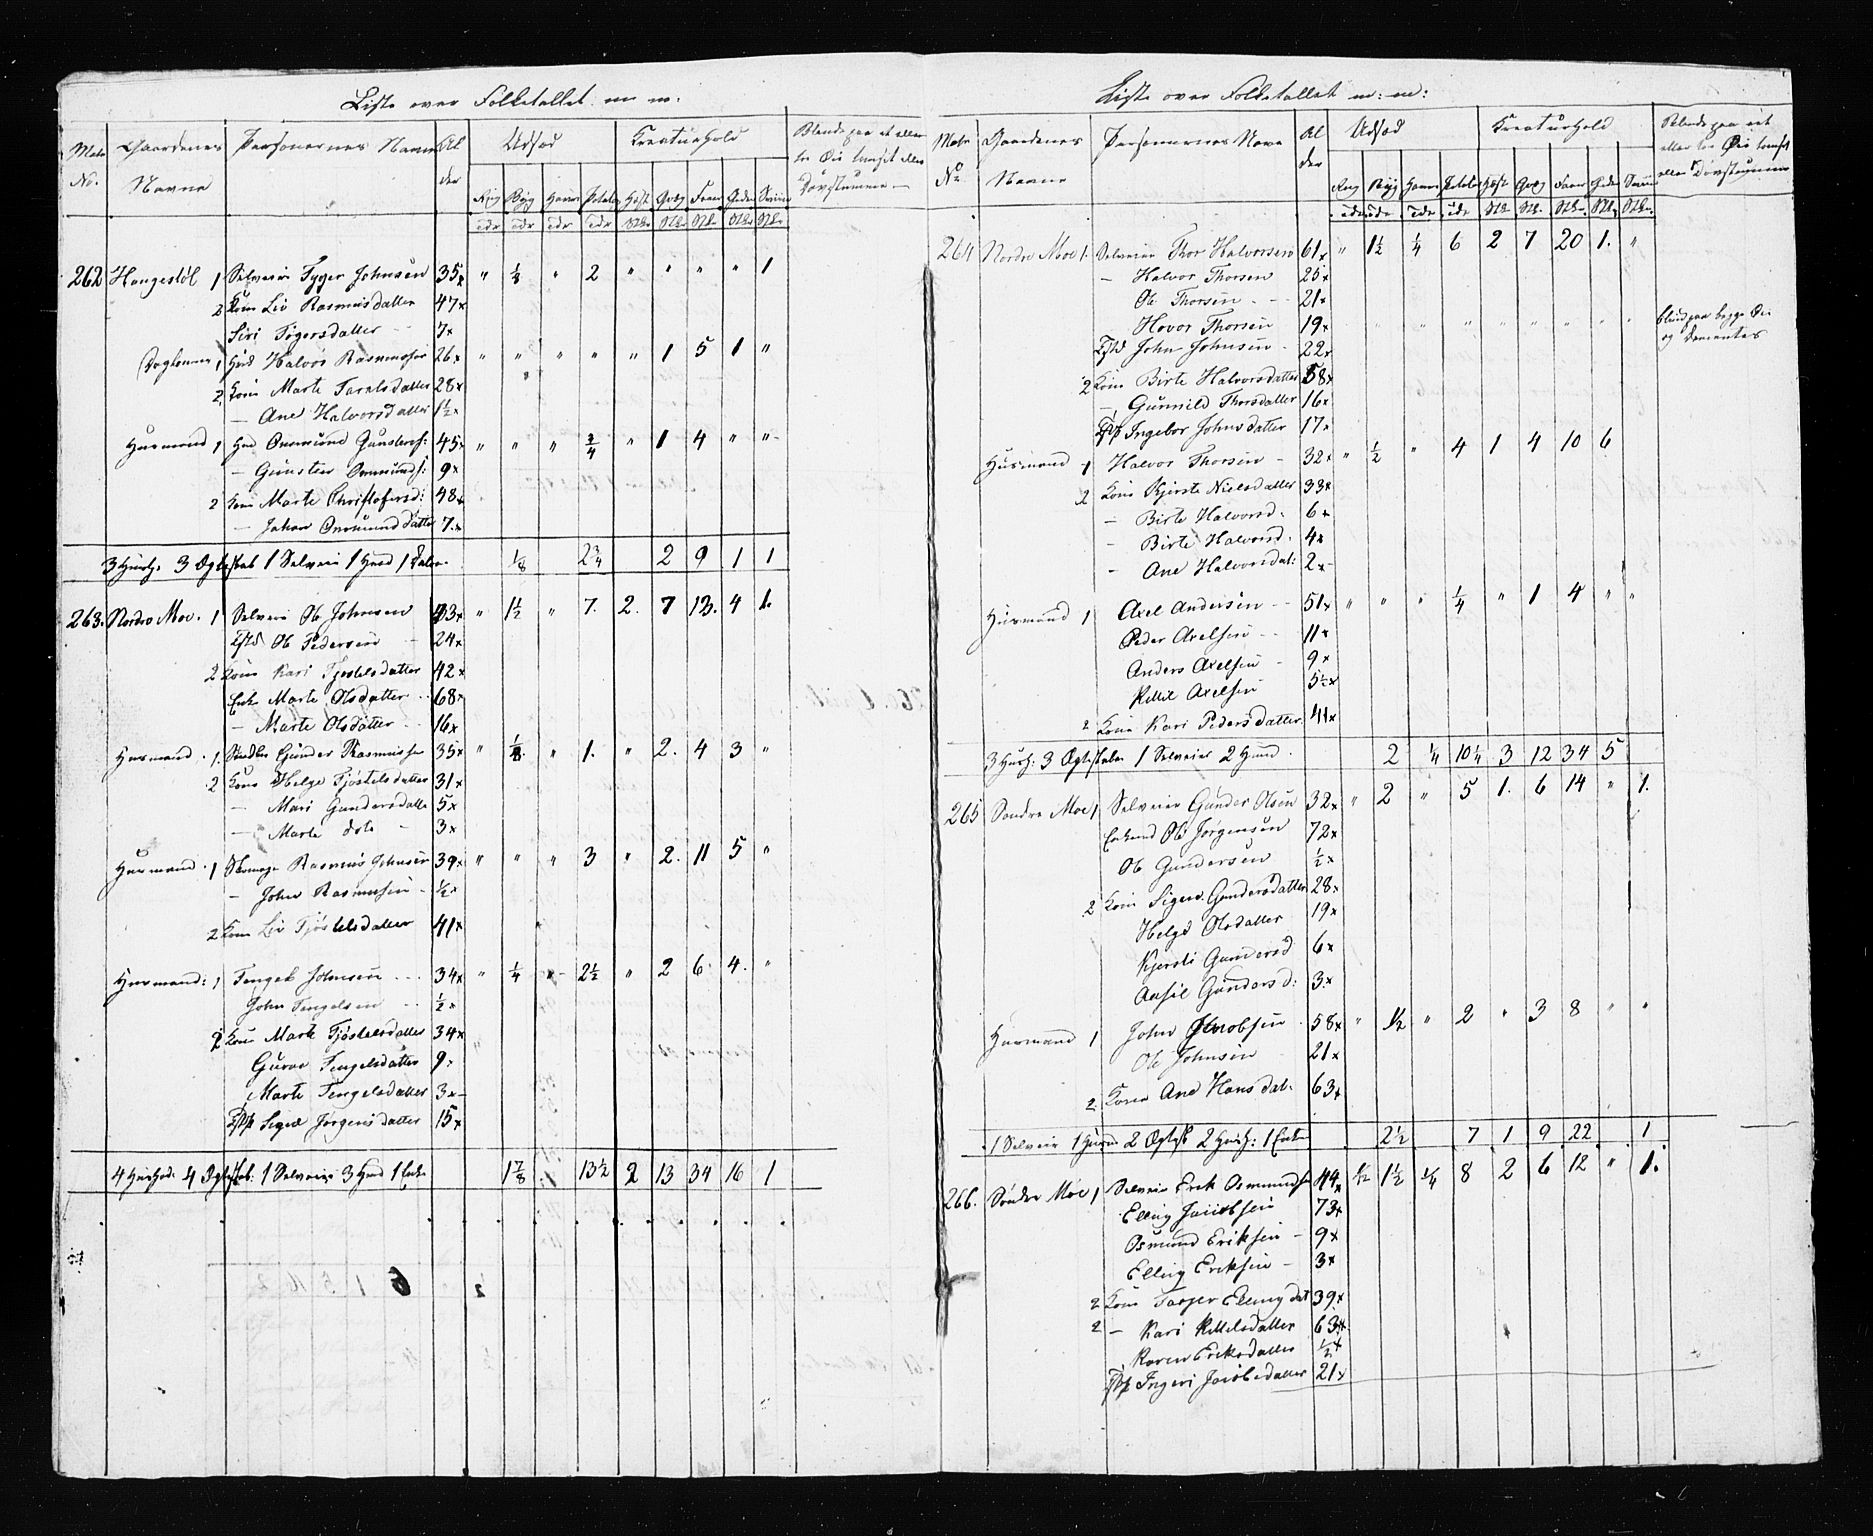 Liste over Folketallet m m:
Matr No. Gaardenes Navne Personernes Navne Alder Udsæd Kreaturhold Blinde paa et eller to Øie tillige eller Døvstumme
Rug Byg Havre Potetes Hest Qvæg Faar Geder Sviin
Tdr Tdr Tdr Tdr Stk Stk Stk Stk Stk
262 Haugestøl 1 Selveier Tyger Johnsen 35x " 1/8 " 2 " " " " 1
2 Kone Liv Rasmusdatter 47x
Siri Tygersdatter 7x
1 Huusmd Halvor Rasmussen 26x " " " " " 1 5 1 "
2 Kone Marte Taraldsdatter 28x
— Ane Halvorsdatter 1½x
Husmand 1 Gunsteens: 45x " " " 3/4 " 1 4 " "
— Gunsten 9x
2 Kone Marte Christofersd: 48x
— Johan datter 7x
3 Huush: 3 Ægteskab 1 Selveier 1 Husd 1 1/8 2 3/4 2 9 1 1
263. Nordre Moe. 1 Selveier Ole Johnsen 53x " 1½ " 7. 2. 7 13. 4 1.
Ole Pedersen 24x
2 Kone Kari Tjostelsdatter 42x
Enke Marte Olsdatter 68x
— Marte Olsdatter 16x
Husmand. 1. Gunder Rasmussen 35x " 1/8 " 1. " 2. 4 3 "
2 Kone Helge Tjøstelsdatter 31x
— Mari Gundersdatter 5x
— Marte dito 3x
Husmand. 1 Rasmus Johnsen 39x " " " 3 " 2. 11 5 "
— John Rasmussen ½x
2 Kone Liv Tjøstelsdatter 41x
Husmand: 1 Tengel Johnsen 34x " 1/4 " 2½ " 2 6 4. "
John Tengelsen ½x
2 Kone Marte Tjøstelsdatter 34x
Guroe Tengelsdatter 9x
Marte Tengelsdatter 3x
Tjp Siged Jørgensdatter 15x
4 Huushold: 4 Ægteskab: 1 Selveier 3 Husd 1 Enke 1 7/8 13½ 2 13 34 16 1
Liste over Folketallet m: m:
Matr No. Gaardenes Navne Personernes Navne Alder Udsæd Kreaturhold Blinde paa eet eller to Øie tillige eller Døvstumme
Rug Byg Havre Potetes Hest Qvæg Faar Geder Sviin
Tdr Tdr Tdr Tdr Stk Stk. Stk. Stk. Stk.
264 Nordre Moe 1. Selveier Thor Halvorsen 61x " 1½ 1/4 6 2 7 20 1. "
— Halvor Thorsen 25x
Ole Thorsen 21x
Hovor Thorsen 19x blind paa begge Øie og Dementes
John Johnsen 22x
2 Kone Birte Halvorsdatter 58x
— Gunnild Thorsdatter 16x
Tjp Ingebor Johnsdatter 17x
Husmand 1 Halvor Thorsen 32x " ½ " 4 1 4 10 6
2 Kone Kjerste Nielsdatter 33x
— Birte Halvorsd. 6x
— Birte Halvorsd. 4x
— Ane Halvorsdat: 2x
Husmand 1 Axel Andersen 51x " " " 1/4 " 1 4 " "
Peder Axelsen 11x
Anders Axelsen 9x
Kittel Axelsen 5½x
2 Kone Kari Pedersdatter. 41x
3 Hush: 3 Ægteskaber 1 Selveier 2 Husmd. 2 1/4 10 1/4 3 12 34 5
265 Søndre Moe 1 Selveier Gunder Olsen 32x " 2 " 5 1. 6 14 " 1.
Enkemd Ole Jørgensen 72x
Ole Gundersen ½x
2 Kone Gundersdatter 28x
Helge Olsdatter 19x
Kjersti Gundersd 6x
Gundersd: 3x
Husmand 1 John Jacobsen 58x " ½ " 2 " 3 8 " "
Ole Johnsen 21x
2 Kone Ane Hansdat: 63x
1 Selveier 1 Husm 2 Ægtesk 2 Hush: 1 Enkem 2½ 7 1 9 22 1
266. Søndre Moe 1 Selveier Erik Osmundsen 44x ½ 1½ 1/4 8 2 6 12 " 1.
Elling Jacobsen 73x
Osmund Eriksen 9x
Elling Eriksen 3x
2 Kone Ellingsdat 39x
2 — Kari Kittelsdatter 63x
Karen Eriksdatter ½x
Tjp Ingeri Jacobsdatter 21x